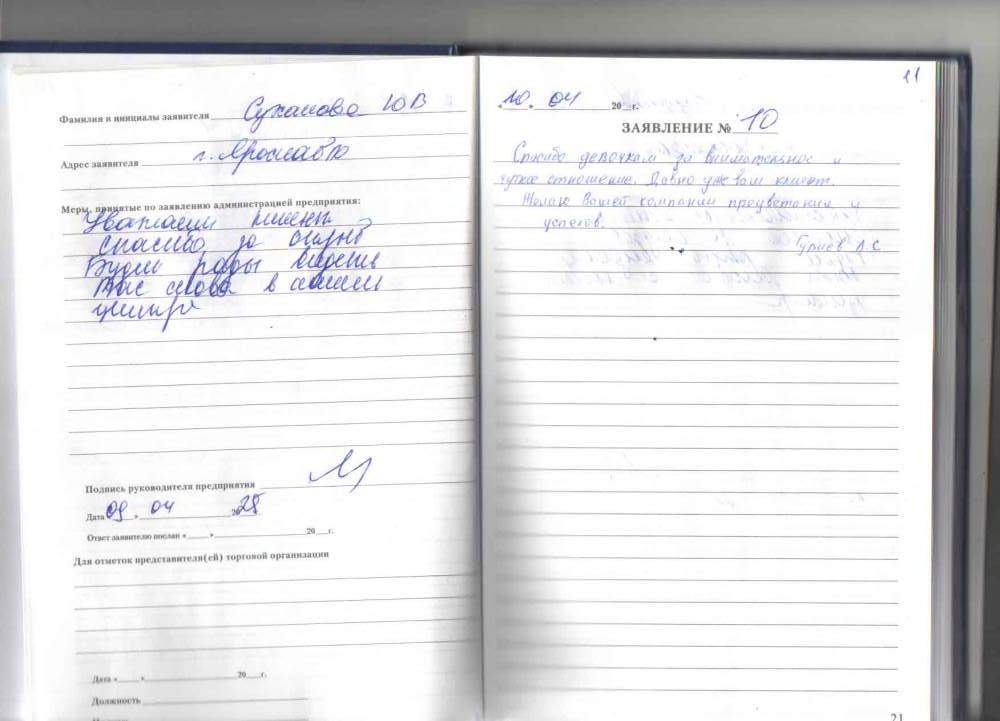 Фамилия и инициалы заявителя Суханова Ю В
Адрес заявителя г. Ярославль
Меры, принятые по заявлению администрацией предприятия:
Уважаемый клиент
спасибо за отзыв
Будем рады видеть
Вас снова в нашем
центре
Подпись руководителя предприятия
Дата 09 » 04 2025
Ответ заявителю послан « » 20 г.
Для отметок представителя(ей) торговой организации
Дата « » 20 г.
Должность
21
«10» 04 20 г.
ЗАЯВЛЕНИЕ № 10
Спасибо девочкам за внимательное и
чуткое отношение. Давно уже вам клиент.
Желаю Вашей компании процветания и
успехов.
Гуриев А.С.
21